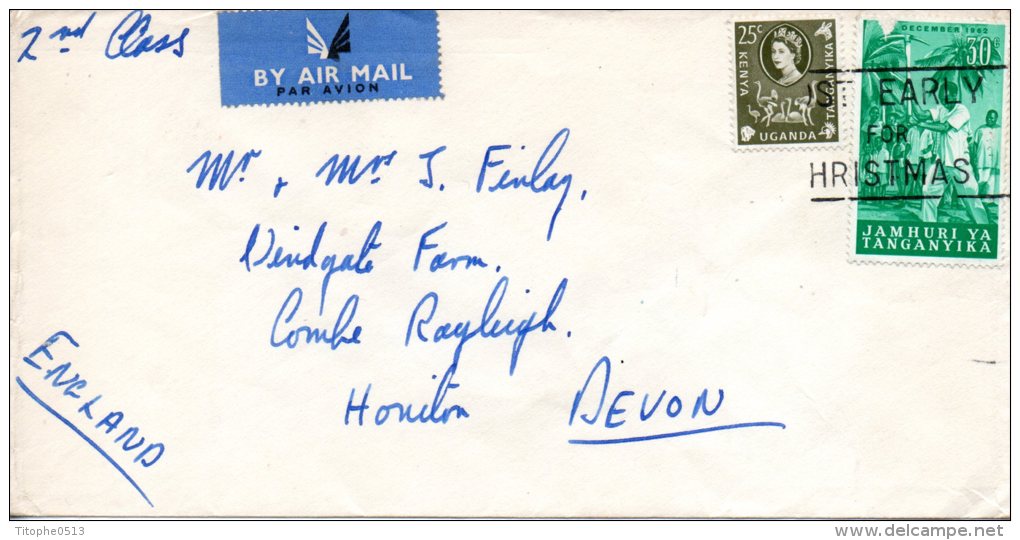 2nd Class
BY AIR MAIL
PAR AVION
25c
KENYA
UGANDA
TANGANYIKA
DECEMBER 1962
30c
JAMHURI YA
TANGANYIKA
EARLY
FOR
HRISTMAS
Mr + Mrs J. Finlay,
Windgate Farm,
Combe Rayleigh.
Honiton DEVON
ENGLAND
Titophe0513
www.delcampe.net